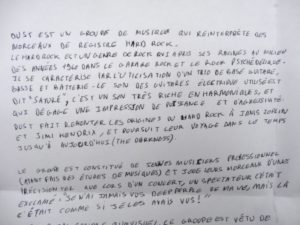 DUST EST UN GROUPE DE MUSIQUE QUI RÉINTERPRÈTE DES
MORCEAUX DE REGISTRE HARD ROCK.
LE HARD ROCK EST UN GENRE DE ROCK QUI A PRIS SES RACINES AU MILIEU
DES ANNÉES 1960 DANS LE GARAGE ROCK ET LE ROCK PSYCHÉDÉLIQUE.
IL SE CARACTÉRISE PAR L'UTILISATION D'UN TRIO DE BASE GUITARE,
BASSE ET BATTERIE. LE SON DES GUITARES ÉLECTRIQUE UTILISÉ EST
DIT "SATURÉ", C'EST UN SON TRÈS RICHE EN HARMONIQUES, ET
QUI DÉGAGE UNE IMPRESSION DE PUISSANCE ET D'AGRESSIVITÉ.
DUST FAIT REMONTER LES ORIGINES DU HARD ROCK À JANIS JOPLIN
ET JIMI HENDRIX, ET POURSUIT LEUR VOYAGE DANS LE TEMPS
JUSQU'À AUJOURD'HUI (THE DARKNESS).
LE GROUPE EST CONSTITUÉ DE MUSICIENS PROFESSIONNEL
(AYANT FAIS DES ÉTUDES DE MUSIQUES) ET JOUE LEURS MORCEAUX D'UNE
PRÉCISION QUE LORS D'UN CONCERT, UN SPECTATEUR S'ÉTAIT
EXCLAMÉ : "JE N'AI JAMAIS VUS DEEP PURPLE DE MA VIE, MAIS LÀ
C'ÉTAIT COMME SI JE LES AVAIS VUS !"
CE GROUPE EST VÊTU DE